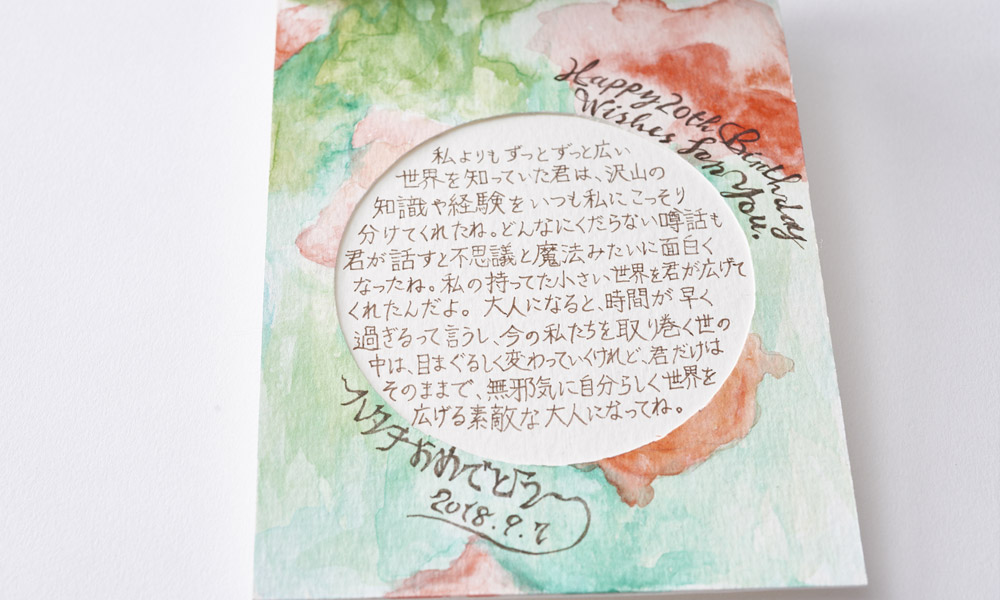 Happy 20th Birthday
Wishes for You.
私よりもずっとずっと広い
世界を知っていた君は、沢山の
知識や経験をいつも私にこっそり
分けてくれたね。どんなにくだらない噂話も
君が話すと不思議と魔法みたいに面白く
なったね。私の持ってた小さい世界を君が広げて
くれたんだよ。大人になると、時間が早く
過ぎるって言うし、今の私たちを取り巻く世の
中は、目まぐるしく変わっていくけれど、君だけは
そのままで、無邪気に自分らしく世界を
広げる素敵な大人になってね。
ハタチおめでとう〜
2018.9.7